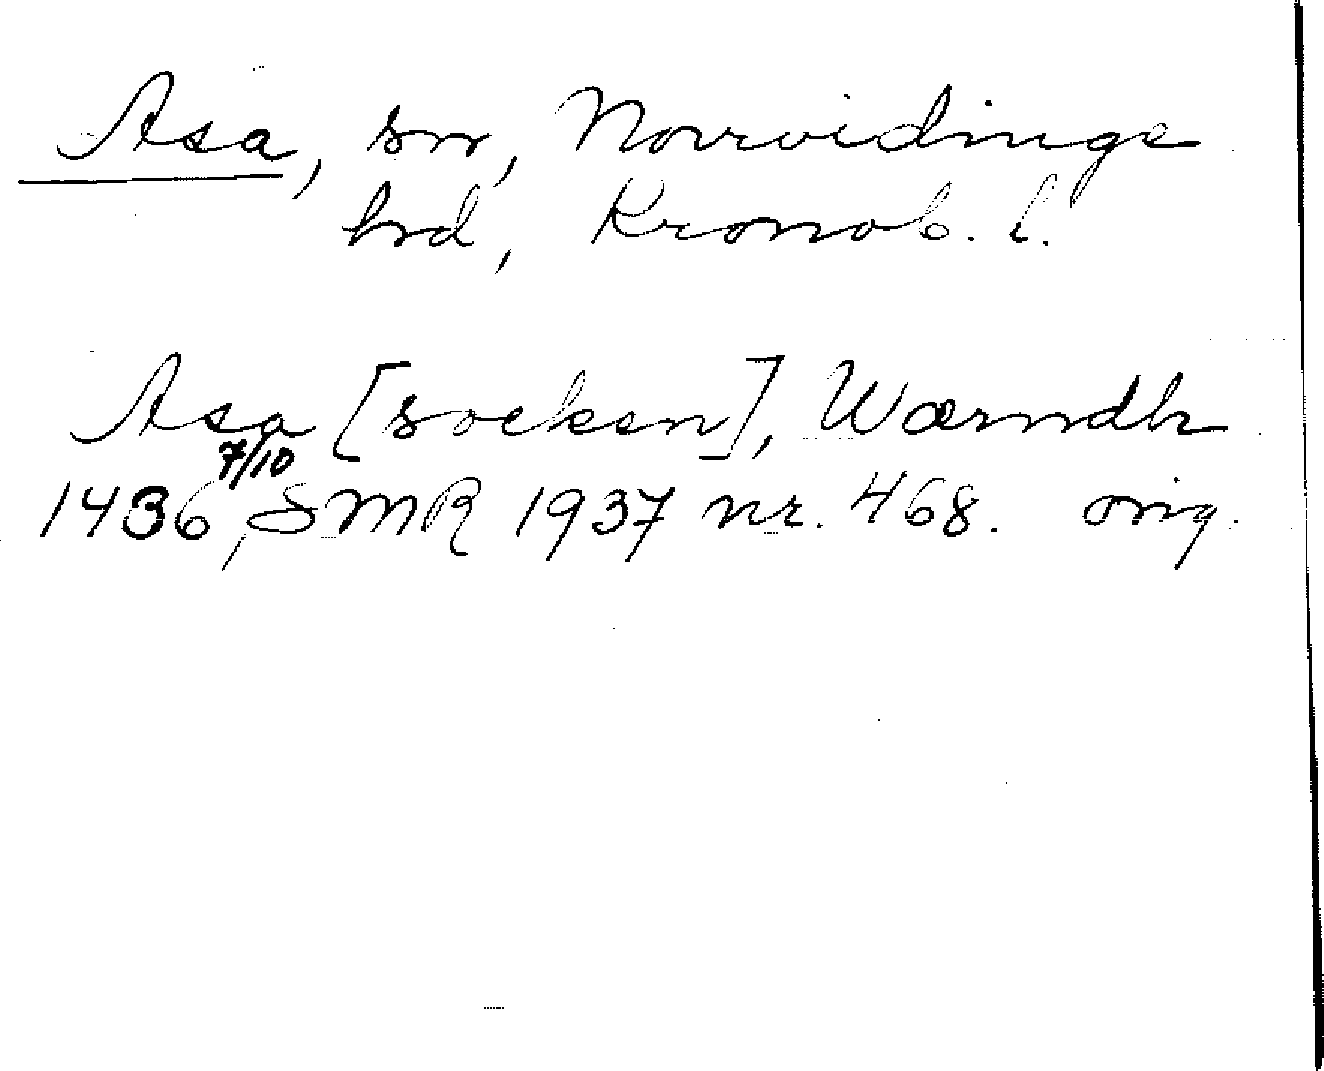 Asa, sn, Norrvidinge
hd, Kronob. l.
Asa [socken], Wærndh
1436 7/10, SMR 1937 nr. 468. orig.